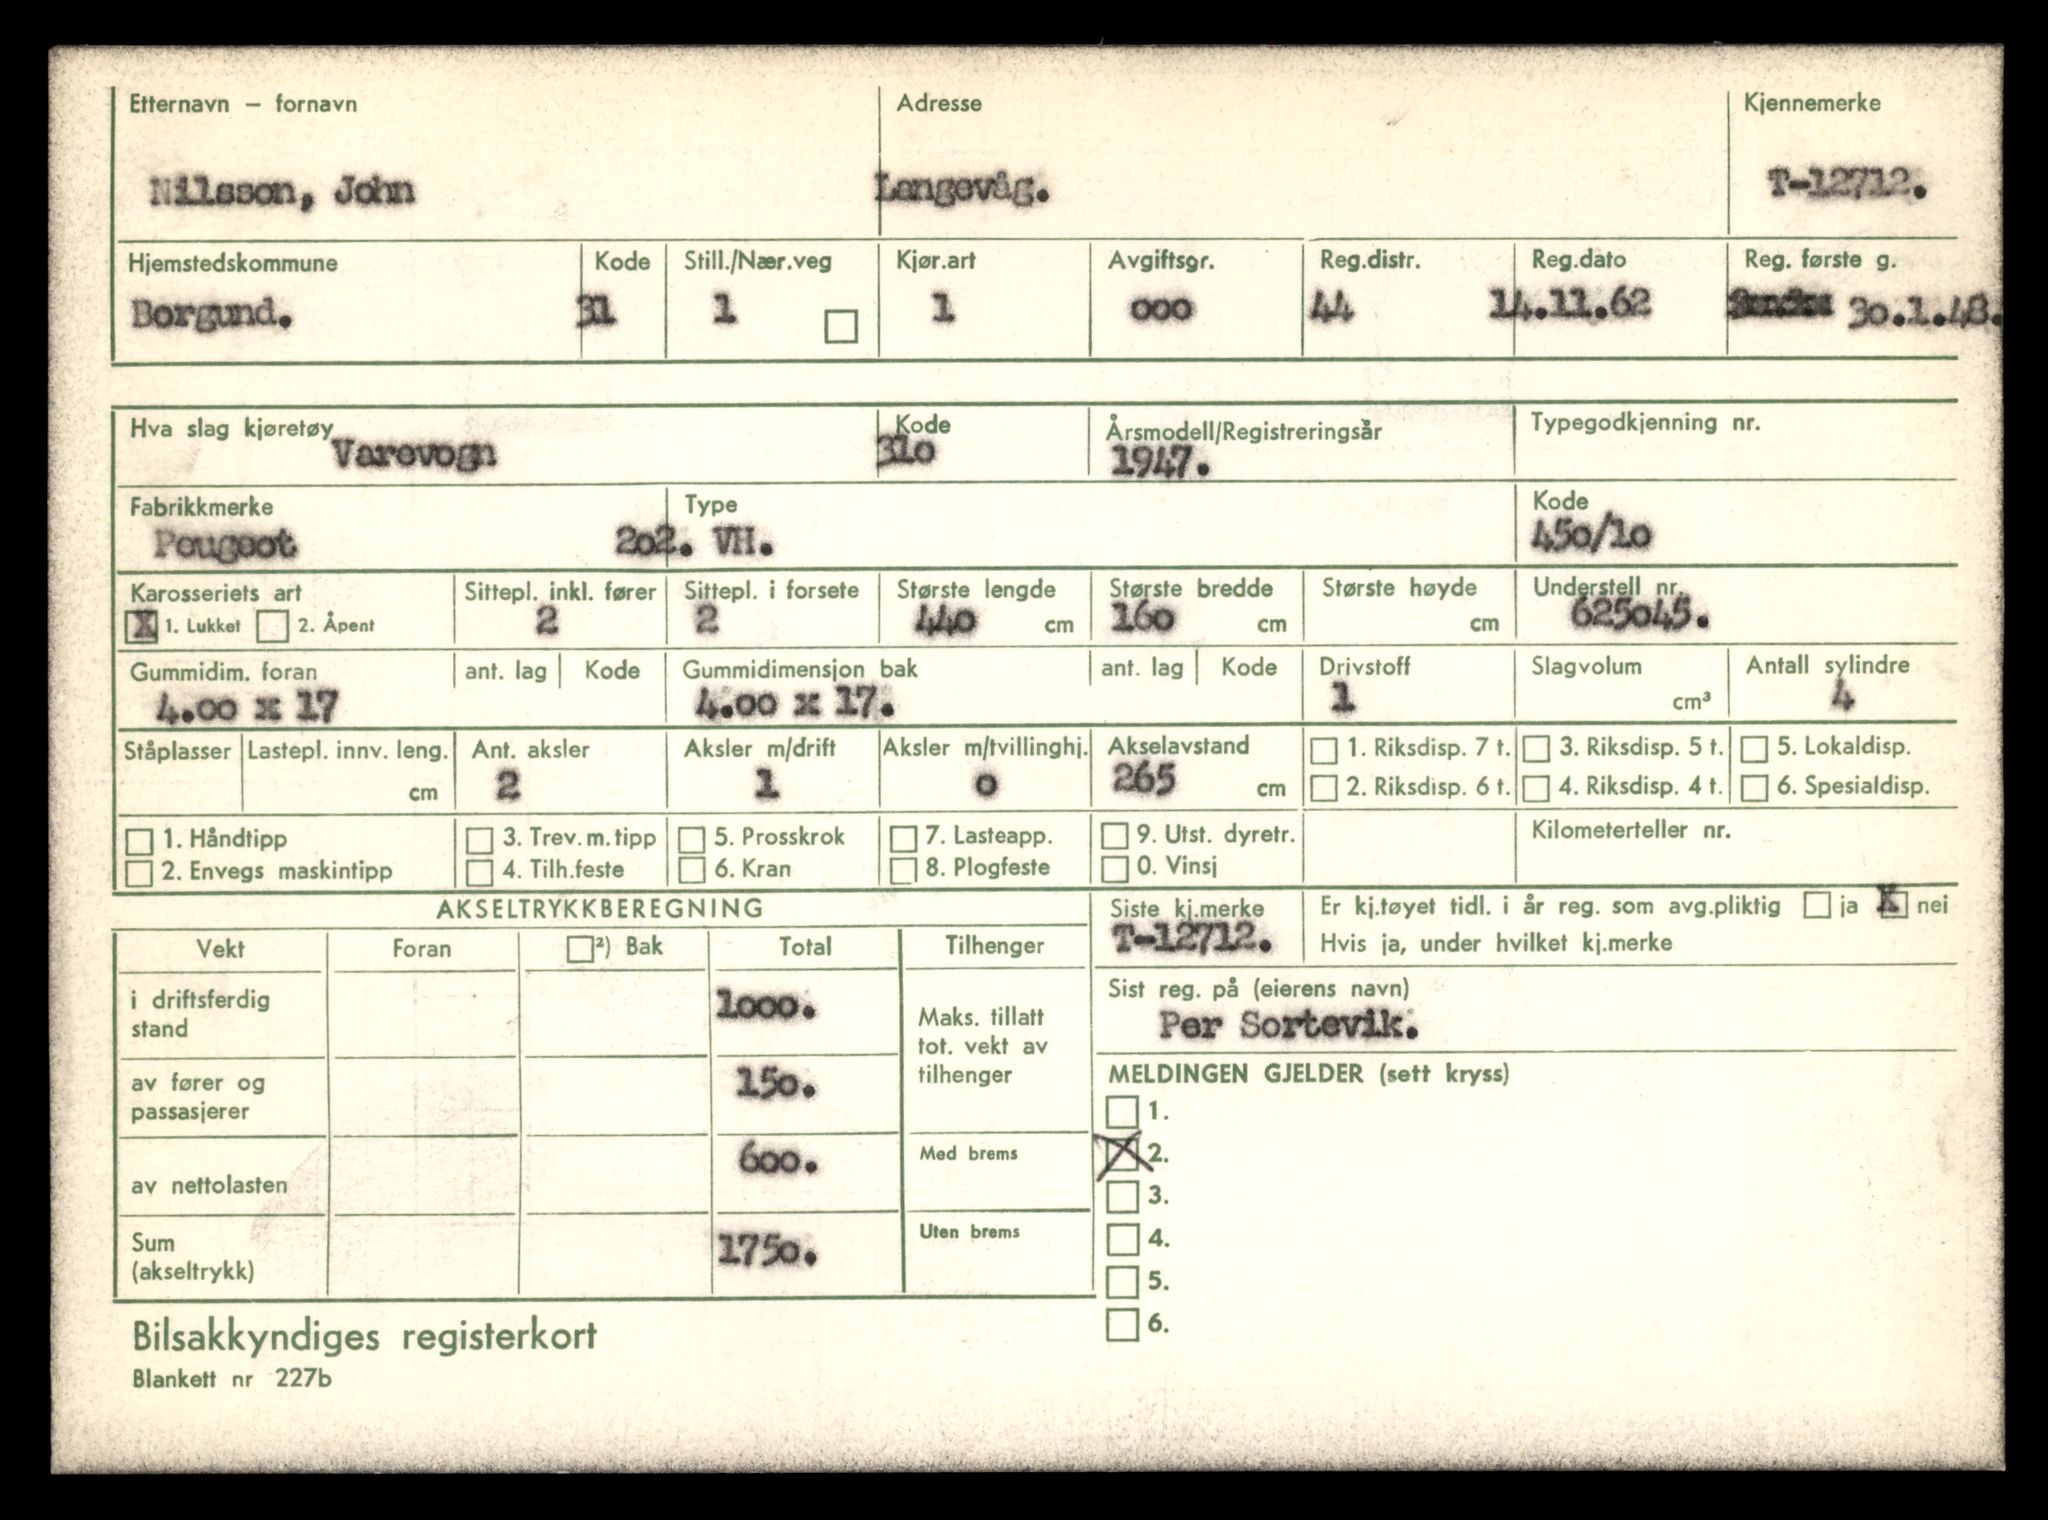 Etternavn – fornavn Adresse Kjennemerke
Nilsson, John Langevåg. T-12712.
Hjemstedskommune Kode Still./Nær.veg Kjør.art Avgiftsgr. Reg.distr. Reg.dato Reg. første g.
Borgund. 31 1 1 000 44 14.11.62 30.1.48.
Hva slag kjøretøy Kode Årsmodell/Registreringsår Typegodkjenning nr.
Varevogn 310 1947.
Fabrikkmerke Type Kode
Peugeot 202. VH. 450/10
Karosseriets art Sittepl. inkl. fører Sittepl. i forsete Største lengde Største bredde Største høyde Understell nr.
X 1. Lukket 2. Åpent 2 2 440 cm 160 cm cm 625045.
Gummidim. foran ant. lag Kode Gummidimensjon bak ant. lag Kode Drivstoff Slagvolum Antall sylindre
4.00 x 17 4.00 x 17. 1 cm³ 4
Ståplasser Lastepl. innv. leng. Ant. aksler Aksler m/drift Aksler m/tvillinghj. Akselavstand 1. Riksdisp. 7 t. 3. Riksdisp. 5 t. 5. Lokaldisp.
cm 2 1 0 265 cm 2. Riksdisp. 6 t. 4. Riksdisp. 4 t. 6. Spesialdisp.
1. Håndtipp 3. Trev. m. tipp 5. Prosskrok 7. Lasteapp. 9. Utst. dyretr. Kilometerteller nr.
2. Envegs maskintipp 4. Tilh.feste 6. Kran 8. Plogfeste 0. Vinsj
AKSELTRYKKBEREGNING Siste kj.merke Er kj.tøyet tidl. i år reg. som avg.pliktig ja X nei
Vekt Foran ²) Bak Total Tilhenger T-12712. Hvis ja, under hvilket kj.merke
i driftsferdig stand 1000. Maks. tillatt tot. vekt av tilhenger Sist reg. på (eierens navn)
Per Sortevik.
av fører og passasjerer 150. MELDINGEN GJELDER (sett kryss)
1.
av nettolasten 600. Med brems X 2.
3.
Sum (akseltrykk) 1750. Uten brems 4.
5.
6.
Bilsakkyndiges registerkort
Blankett nr 227b